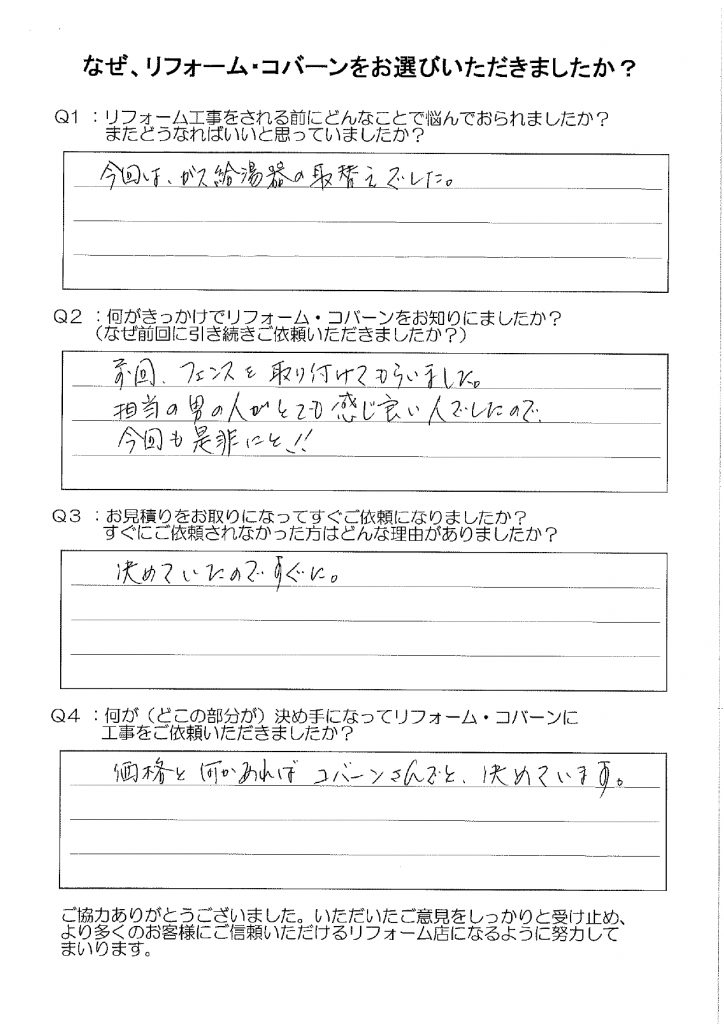 なぜ、リフォーム・コバーンをお選びいただきましたか?
Q1 :リフォーム工事をされる前にどんなことで悩んでおられましたか?
またどうなればいいと思っていましたか?
今回は、ガス給湯器の取替えでした。
Q2 :何がきっかけでリフォーム・コバーンをお知りにましたか?
(なぜ前回に引き続きご依頼いただきましたか?)
前回、フェンスを取り付けてもらいました。
担当の男の人がとても感じ良い人でしたので、
今回も是非にと!!
Q3 :お見積りをお取りになってすぐご依頼になりましたか?
すぐにご依頼されなかった方はどんな理由がありましたか?
決めていたのですぐに。
Q4 :何が(どこの部分が)決め手になってリフォーム・コバーンに
工事をご依頼いただきましたか?
価格と何かあればコバーンさんでと、決めています。
ご協力ありがとうございました。いただいたご意見をしっかりと受け止め、
より多くのお客様にご信頼いただけるリフォーム店になるように努力して
まいります。